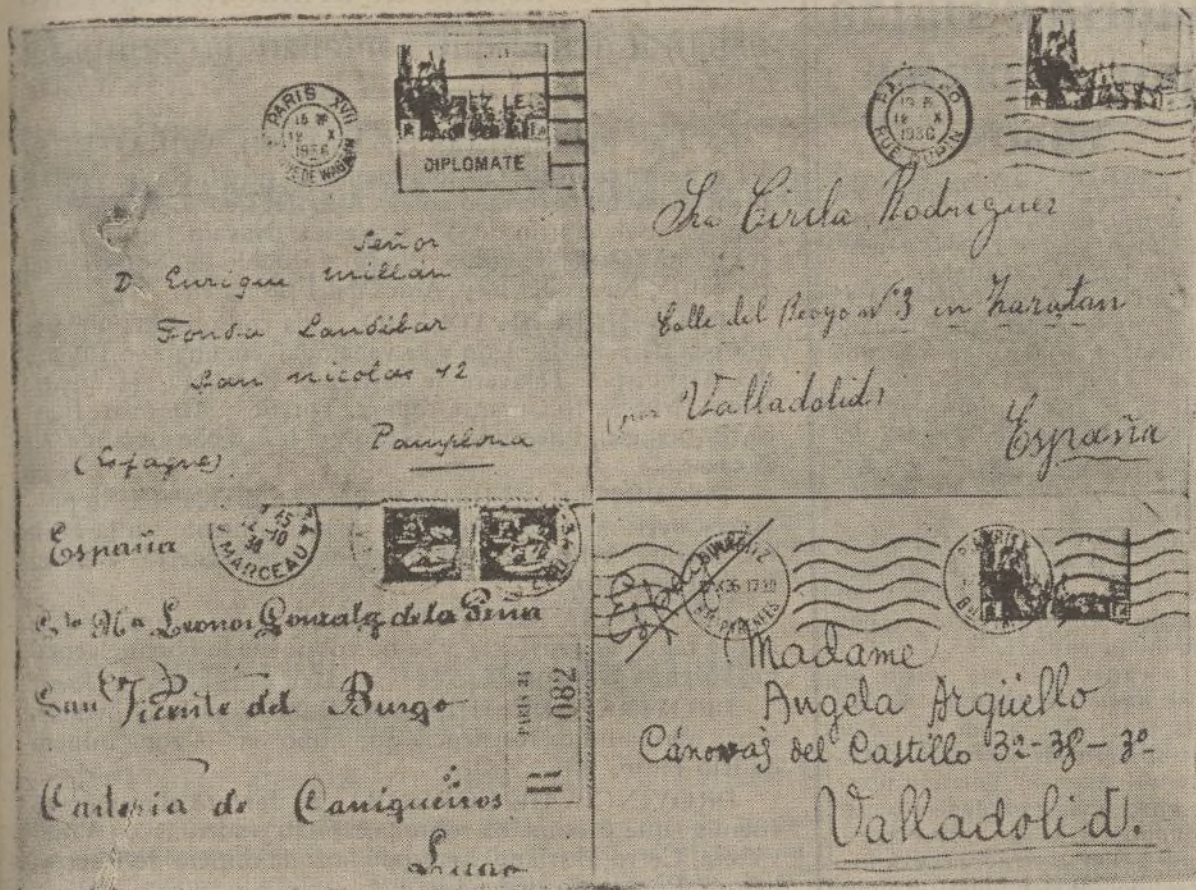 PARIS XVII
15
19 X
1936
DIPLOMATE
Señor
D. Enrique Millán
Fonda Landibar
San Nicolas 42
Pamplona
(Espagne)
19
19 X
1936
RUE
Sra Cirila Rodriguez
Calle del Nº 3 en Zaratan
(por Valladolid)
España
España
MARCEAU
Mª Leonor Gonzalez de la
San Vicente del Burgo
Carteria de Canigueiros
Lugo
082
17 30
Madame
Angela Argüello
Cánovas del Castillo 32-38-3º
Valladolid.